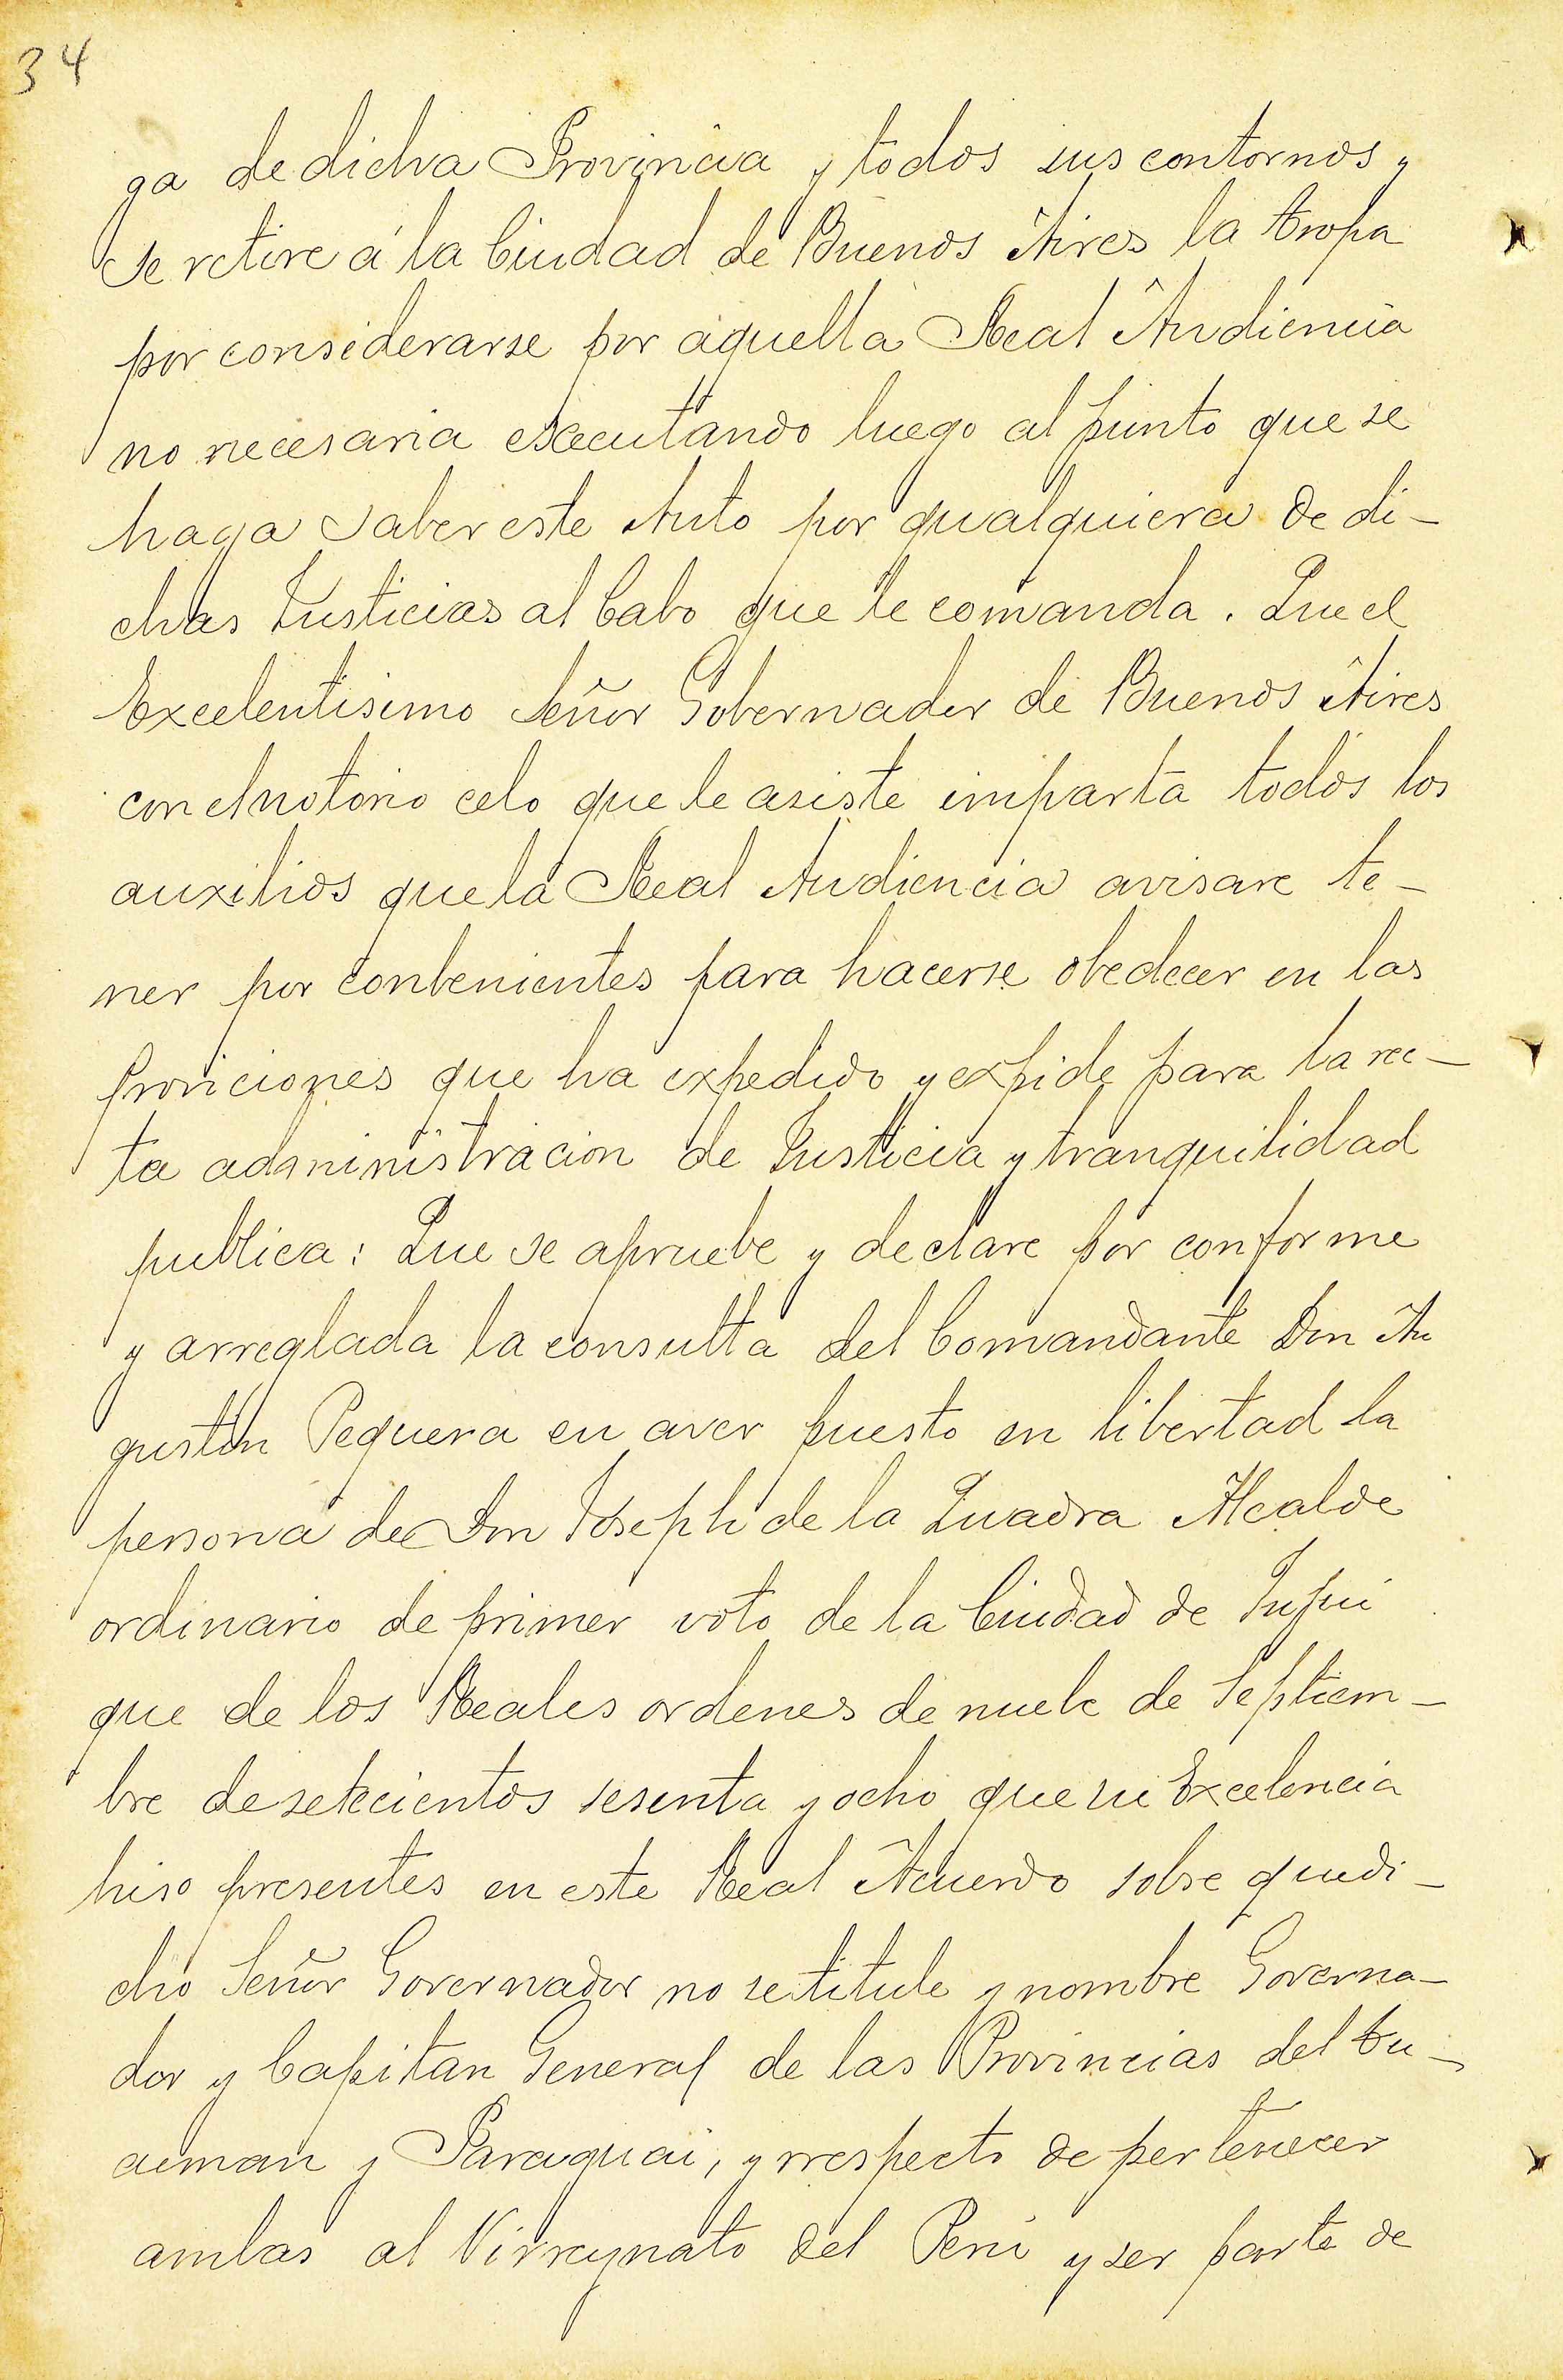 34
ga de dicha Provincia y todos sus contornos y
se retire á la Ciudad de Buenos Aires la tropa
por considerarse por aquella Real Audiencia
no necesaria executando luego al punto que se
haga saber este Auto por qualquiera de di-
chas Justicias al Cabo que le comanda. Que el
Excelentisimo Señor Gobernador de Buenos Aires
con el notorio celo que le asiste imparta todos los
auxilios que la Real Audiencia avisare te-
ner por conbenientes para hacerse obedecer en las
Proviciones que ha expedido y expide para la rec-
ta administracion de Justicia y tranquilidad
publica: Que se apruebe y declare por conforme
y arreglada la consulta del Comandante Don Au
gustin Pequera en aver puesto en libertad la
persona de Don Joseph de la Quadra Alcalde
ordinario de primer voto de la Ciudad de Jujui
que de los Reales ordenes de nuebe de Septiem-
bre de setecientos sesenta y ocho que su Excelencia
hiso presentes en este Real Acuerdo sobre que di-
cho Señor Governador no se titule y nombre Governa-
dor y Capitan General de las Provincias del tu-
cuman y Paraguai, y rrespecto de pertenecer
ambas al Virreynato del Perú y ser parte de